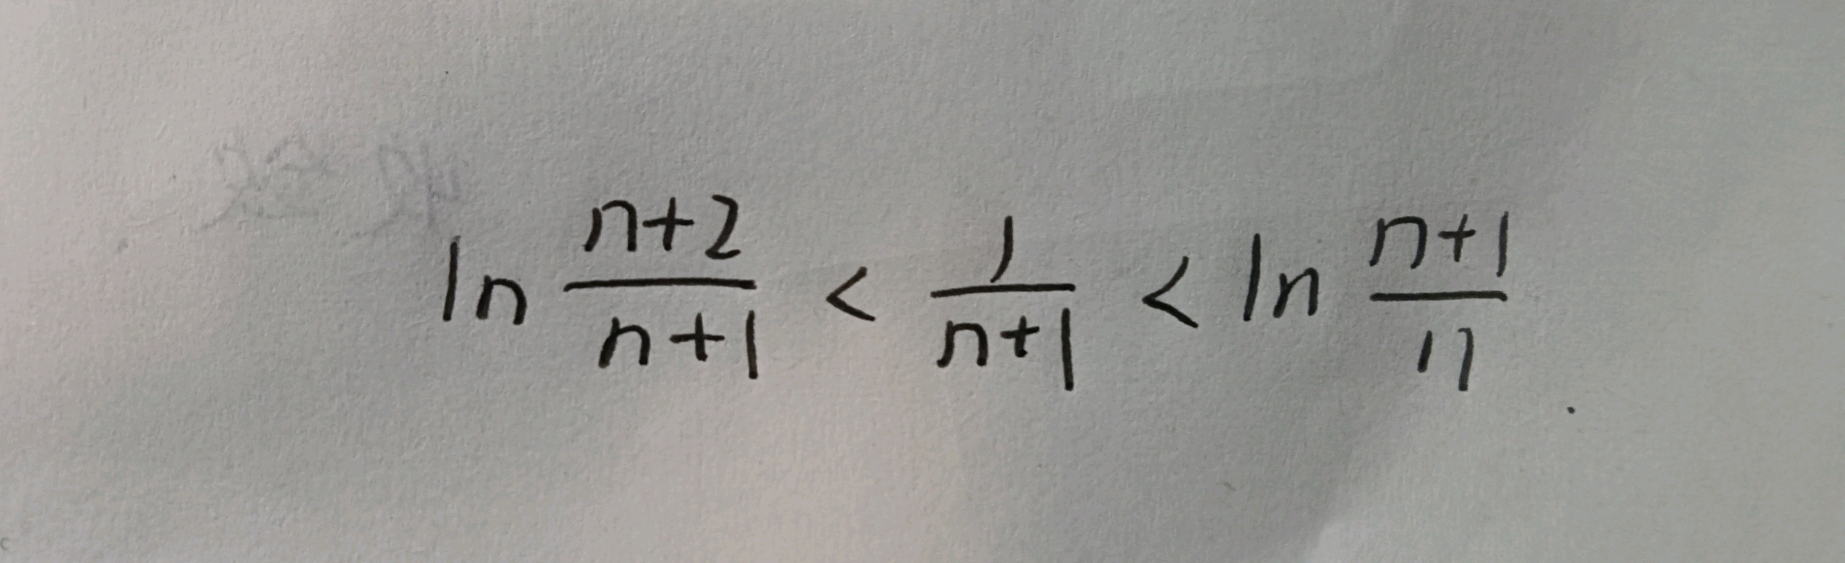 ln \frac{n+2}{n+1} < \frac{1}{n+1} < ln \frac{n+1}{n}